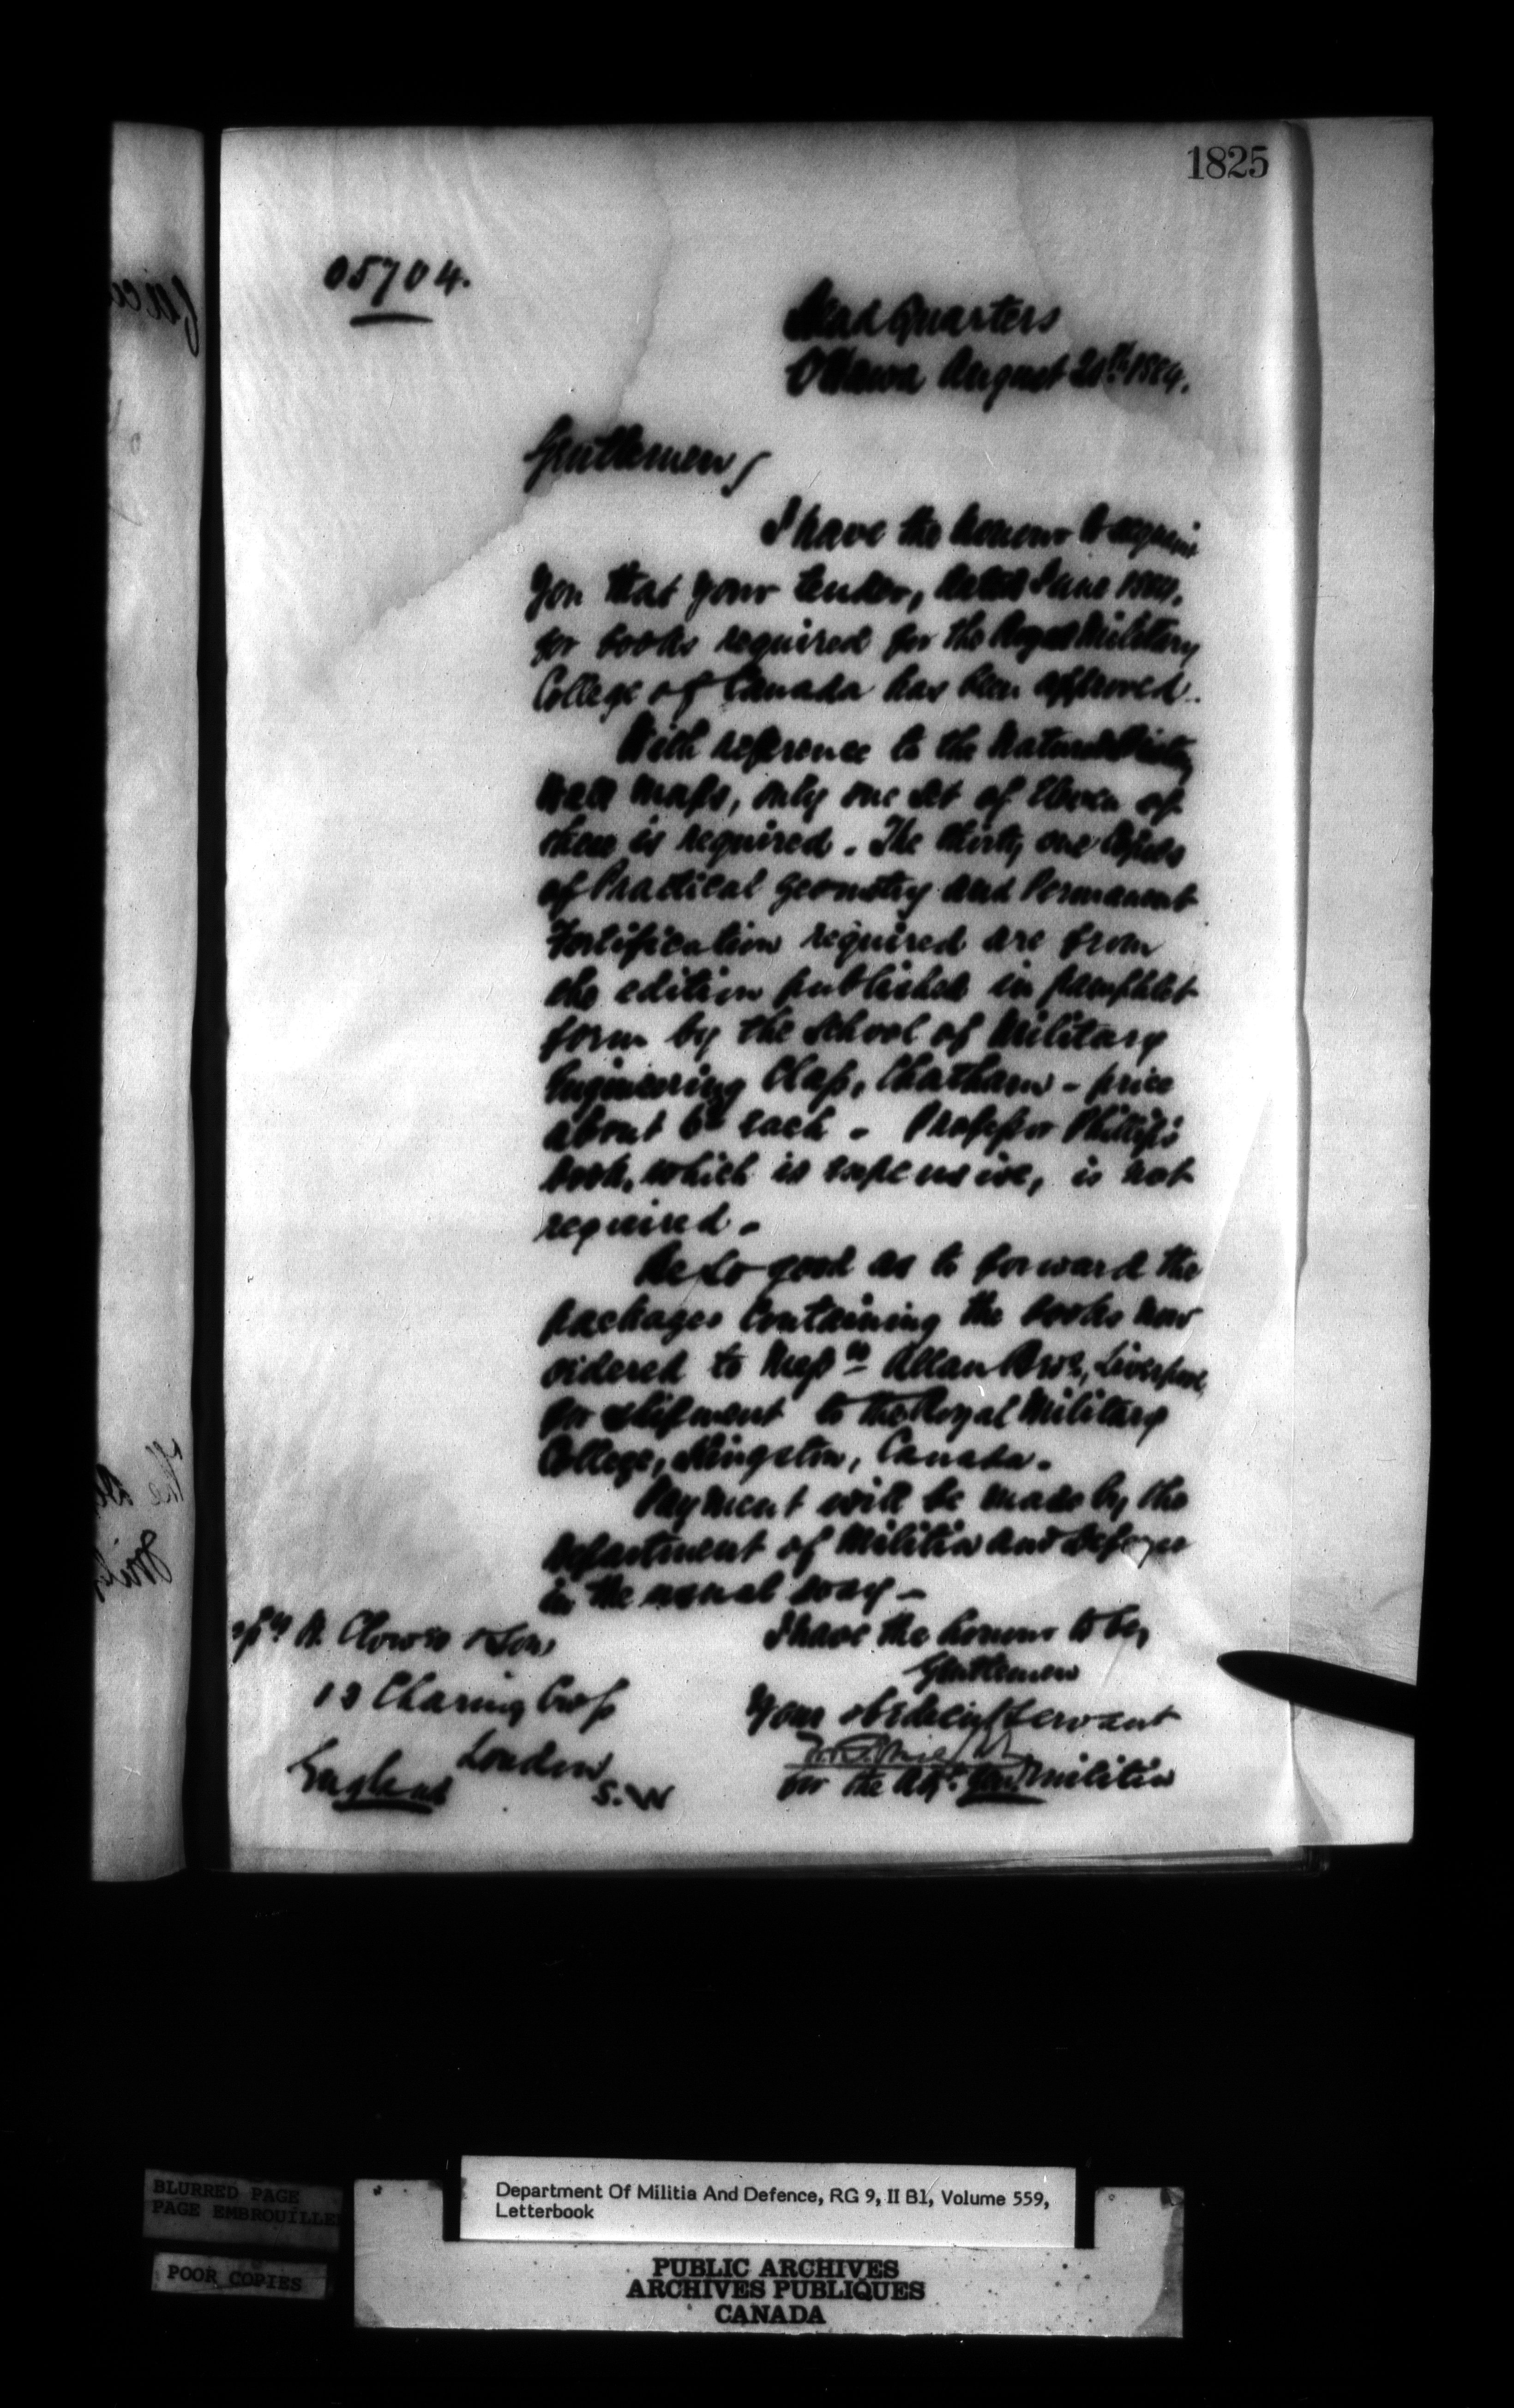 1825
05704.
Head Quarters
Ottawa August 20th 1884.
Gentlemen,
I have the honour to acquaint
you that your tender, dated June 1884,
for books required for the Royal Military
College of Canada has been approved.
With reference to the Natural History
Wall Maps, only one set of eleven of
them is required. The thirty one copies
of Practical Geometry and Permanent
Fortification required are from
the edition published in pamphlet
form by the School of Military
Engineering Class, Chatham - price
about 6d each - Professor Phillips'
book, which is expensive, is not
required -
Be so good as to forward the
packages containing the books now
ordered to Messrs Allan Bros, Liverpool,
for shipment to the Royal Military
College, Kingston, Canada.
Payment will be made by the
Department of Militia and Defence
in the usual way -
W. Clowes & Sons
I have the honour to be,
Gentlemen
13 Charing Cross
Your obedient servant
London
for the Adjt. Genl Militia
England
S.W
BLURRED PAGE
PAGE EMBROUILLE
POOR COPIES
Department Of Militia And Defence, RG 9, II B1, Volume 559,
Letterbook
PUBLIC ARCHIVES
ARCHIVES PUBLIQUES
CANADA